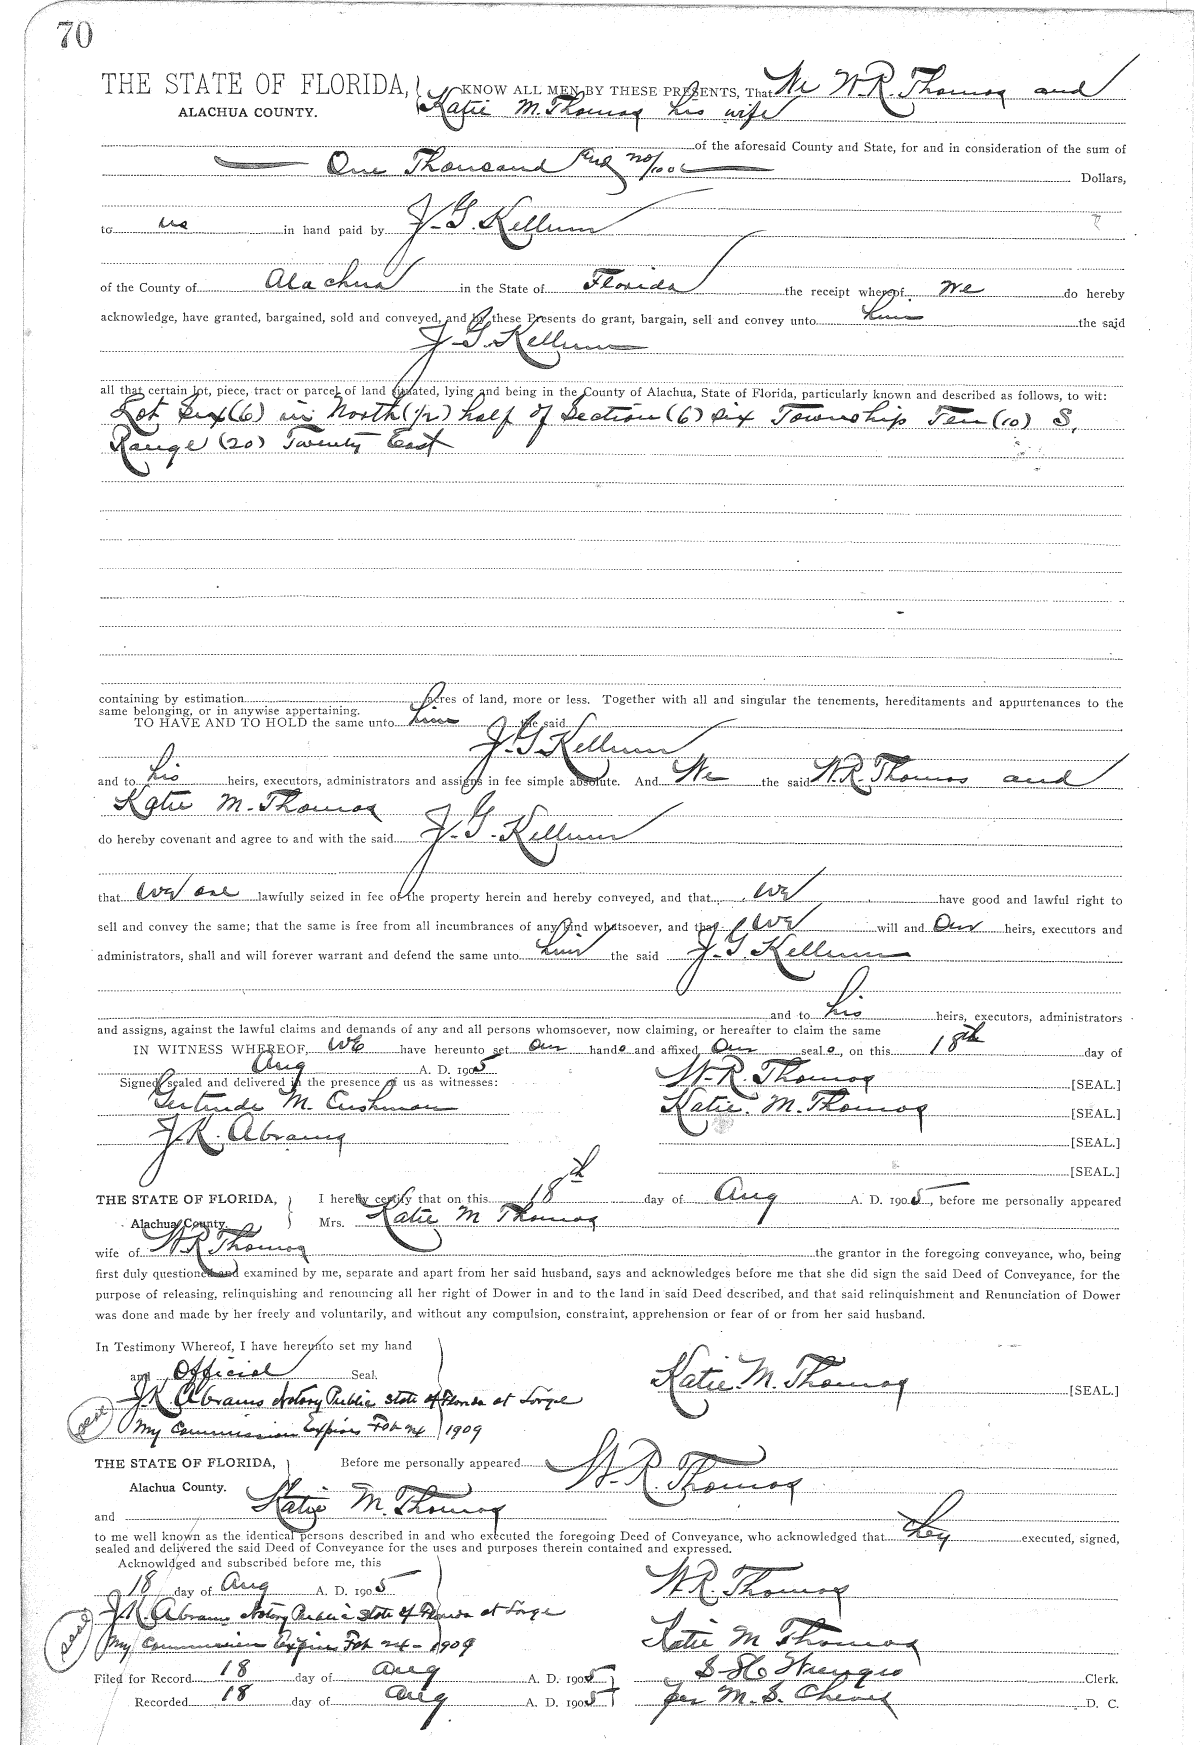 70
THE STATE OF FLORIDA, KNOW ALL MEN BY THESE PRESENTS, That We W. R. Thomas and
ALACHUA COUNTY. Katie M. Thomas his wife
of the aforesaid County and State, for and in consideration of the sum of
One Thousand and no/100 Dollars,
to us in hand paid by J. G. Kellum
of the County of Alachua in the State of Florida the receipt whereof We do hereby
acknowledge, have granted, bargained, sold and conveyed, and by these Presents do grant, bargain, sell and convey unto him the said
J. G. Kellum
all that certain lot, piece, tract or parcel of land situated, lying and being in the County of Alachua, State of Florida, particularly known and described as follows, to wit:
Lot Six (6) in North (1/2) half of Section (6) six Township Ten (10) S,
Range (20) Twenty East
containing by estimation acres of land, more or less. Together with all and singular the tenements, hereditaments and appurtenances to the
same belonging, or in anywise appertaining.
TO HAVE AND TO HOLD the same unto him the said
J. G. Kellum
and to his heirs, executors, administrators and assigns in fee simple absolute. And We the said W. R. Thomas and
Katie M. Thomas
do hereby covenant and agree to and with the said J. G. Kellum
that we are lawfully seized in fee of the property herein and hereby conveyed, and that we have good and lawful right to
sell and convey the same; that the same is free from all incumbrances of any kind whatsoever, and that we will and our heirs, executors and
administrators, shall and will forever warrant and defend the same unto him the said J. G. Kellum
and to his heirs, executors, administrators
and assigns, against the lawful claims and demands of any and all persons whomsoever, now claiming, or hereafter to claim the same
IN WITNESS WHEREOF, we have hereunto set our hands and affixed our seals, on this 18th day of
Aug A. D. 1905
Signed, sealed and delivered in the presence of us as witnesses: W. R. Thomas [SEAL.]
Gertrude M. Cushman Katie. M. Thomas [SEAL.]
J. K. Abrams [SEAL.]
[SEAL.]
THE STATE OF FLORIDA, I hereby certify that on this 18th day of Aug A. D. 1905, before me personally appeared
Alachua County. Mrs. Katie M Thomas
wife of W R Thomas the grantor in the foregoing conveyance, who, being
first duly questioned and examined by me, separate and apart from her said husband, says and acknowledges before me that she did sign the said Deed of Conveyance, for the
purpose of releasing, relinquishing and renouncing all her right of Dower in and to the land in said Deed described, and that said relinquishment and Renunciation of Dower
was done and made by her freely and voluntarily, and without any compulsion, constraint, apprehension or fear of or from her said husband.
In Testimony Whereof, I have hereunto set my hand
and Official Seal. Katie. M. Thomas [SEAL.]
J. K. Abrams Notary Public State of Florida at Large
seal My Commission Expires Feb 24 1909
THE STATE OF FLORIDA, Before me personally appeared W. R. Thomas
Alachua County.
and Katie M. Thomas
to me well known as the identical persons described in and who executed the foregoing Deed of Conveyance, who acknowledged that they executed, signed,
sealed and delivered the said Deed of Conveyance for the uses and purposes therein contained and expressed.
Acknowldged and subscribed before me, this
18 day of Aug A. D. 1905 W. R. Thomas
J. K. Abrams Notary Public State of Florida at Large
seal My Commission Expires Feb 24 - 1909 Katie M Thomas
Filed for Record 18 day of Aug A. D. 1905 Clerk.
Recorded 18 day of Aug A. D. 1905 per M. S. Cheves D. C.